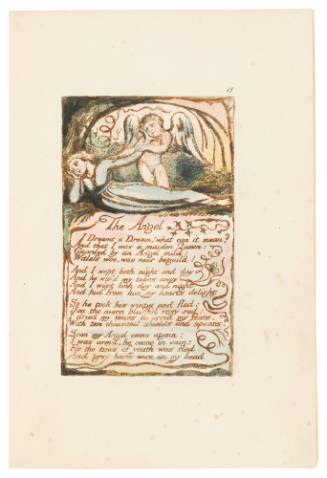 The Angel
I Dreamt a Dream! what can it mean?
And that I was a maiden Queen:
Guarded by an Angel mild:
Witless woe, was neer beguil'd!
And I wept both night and day
And he wip'd my tears away
And I wept both day and night
And hid from him my hearts delight
So he took his wings and fled:
Then the morn blush'd rosy red:
I dried my tears & armd my fears,
With ten thousand shields and spears.
Soon my Angel came again:
I was arm'd, he came in vain:
For the time of youth was fled
And grey hairs were on my head